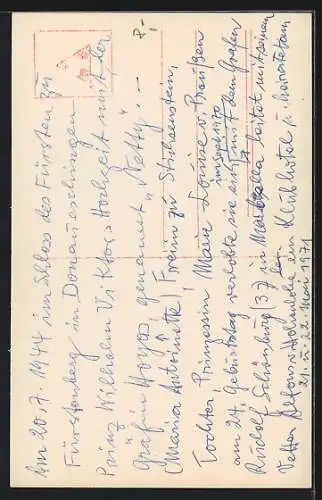 Am 20.7.1944 im Schloss des Fürsten zu
Fürstenberg in Donaueschingen
Prinz Wilhelm Viktors Hochzeit mit der
Gräfin Hoyos, genannt "Netty". –
(Maria Antoinette) Freiin zu Stichsenstein,
Tochter Prinzessin Marie Louise v. Preußen
am 24. Geburtstag verlobte sie sich mit dem Grafen
Rudolf Schönburg (37) in Marbella leitet mit seinem
Vetter Alfons v. Hohenlohe ein Klubhotel u. heiratet am
21. u. 22. Mai 1971
8,-